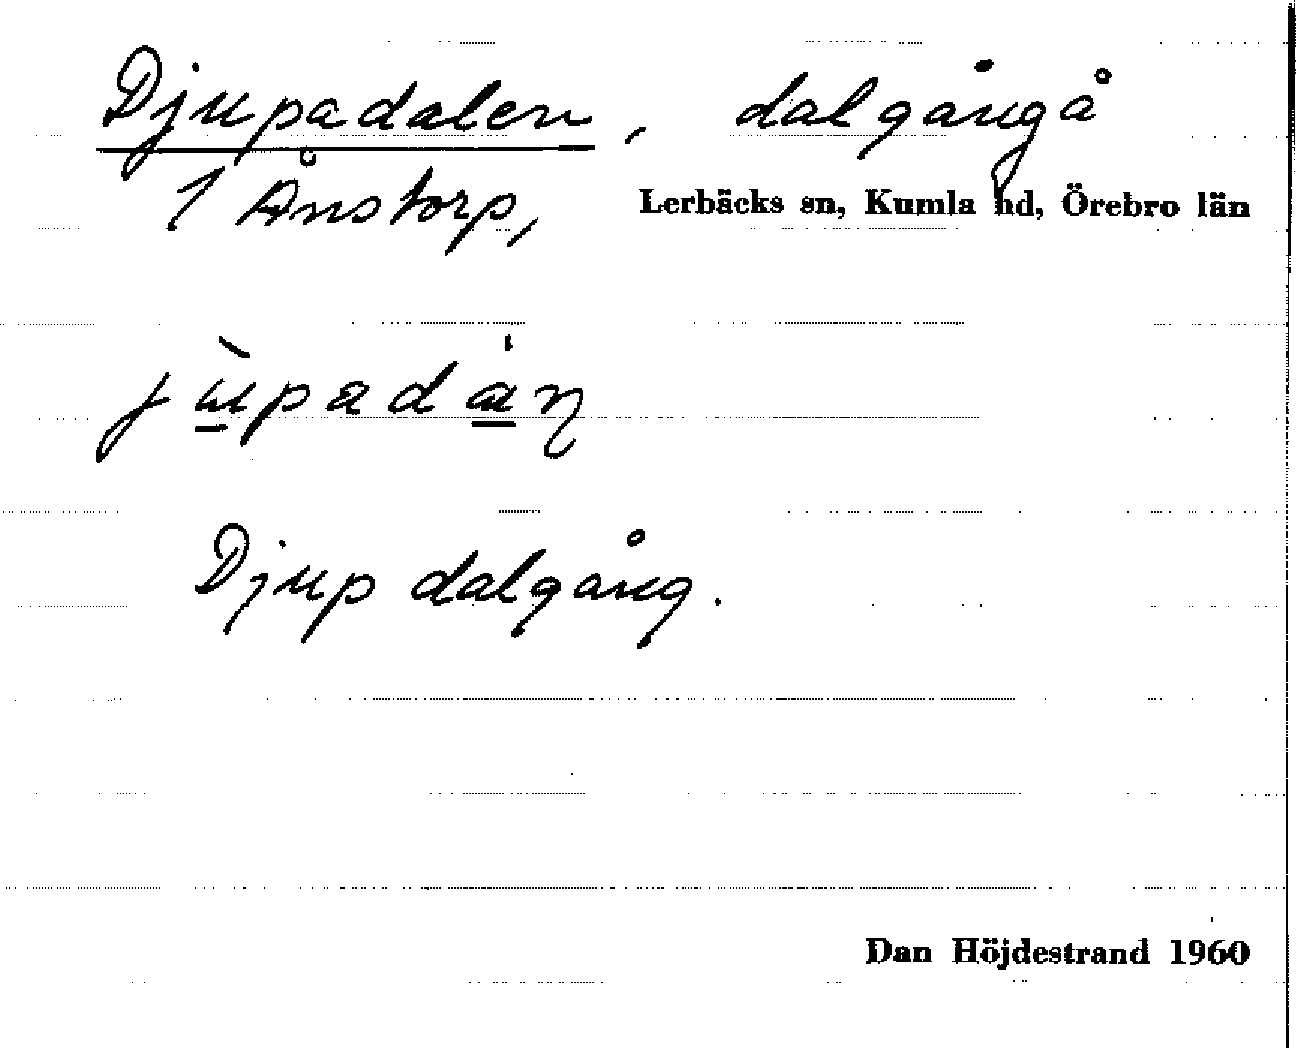 Djupadalen, dalgång å
1 Ånstorp, Lerbäcks sn, Kumla hd, Örebro län
Djup dalgång.
Dan Höjdestrand 1960